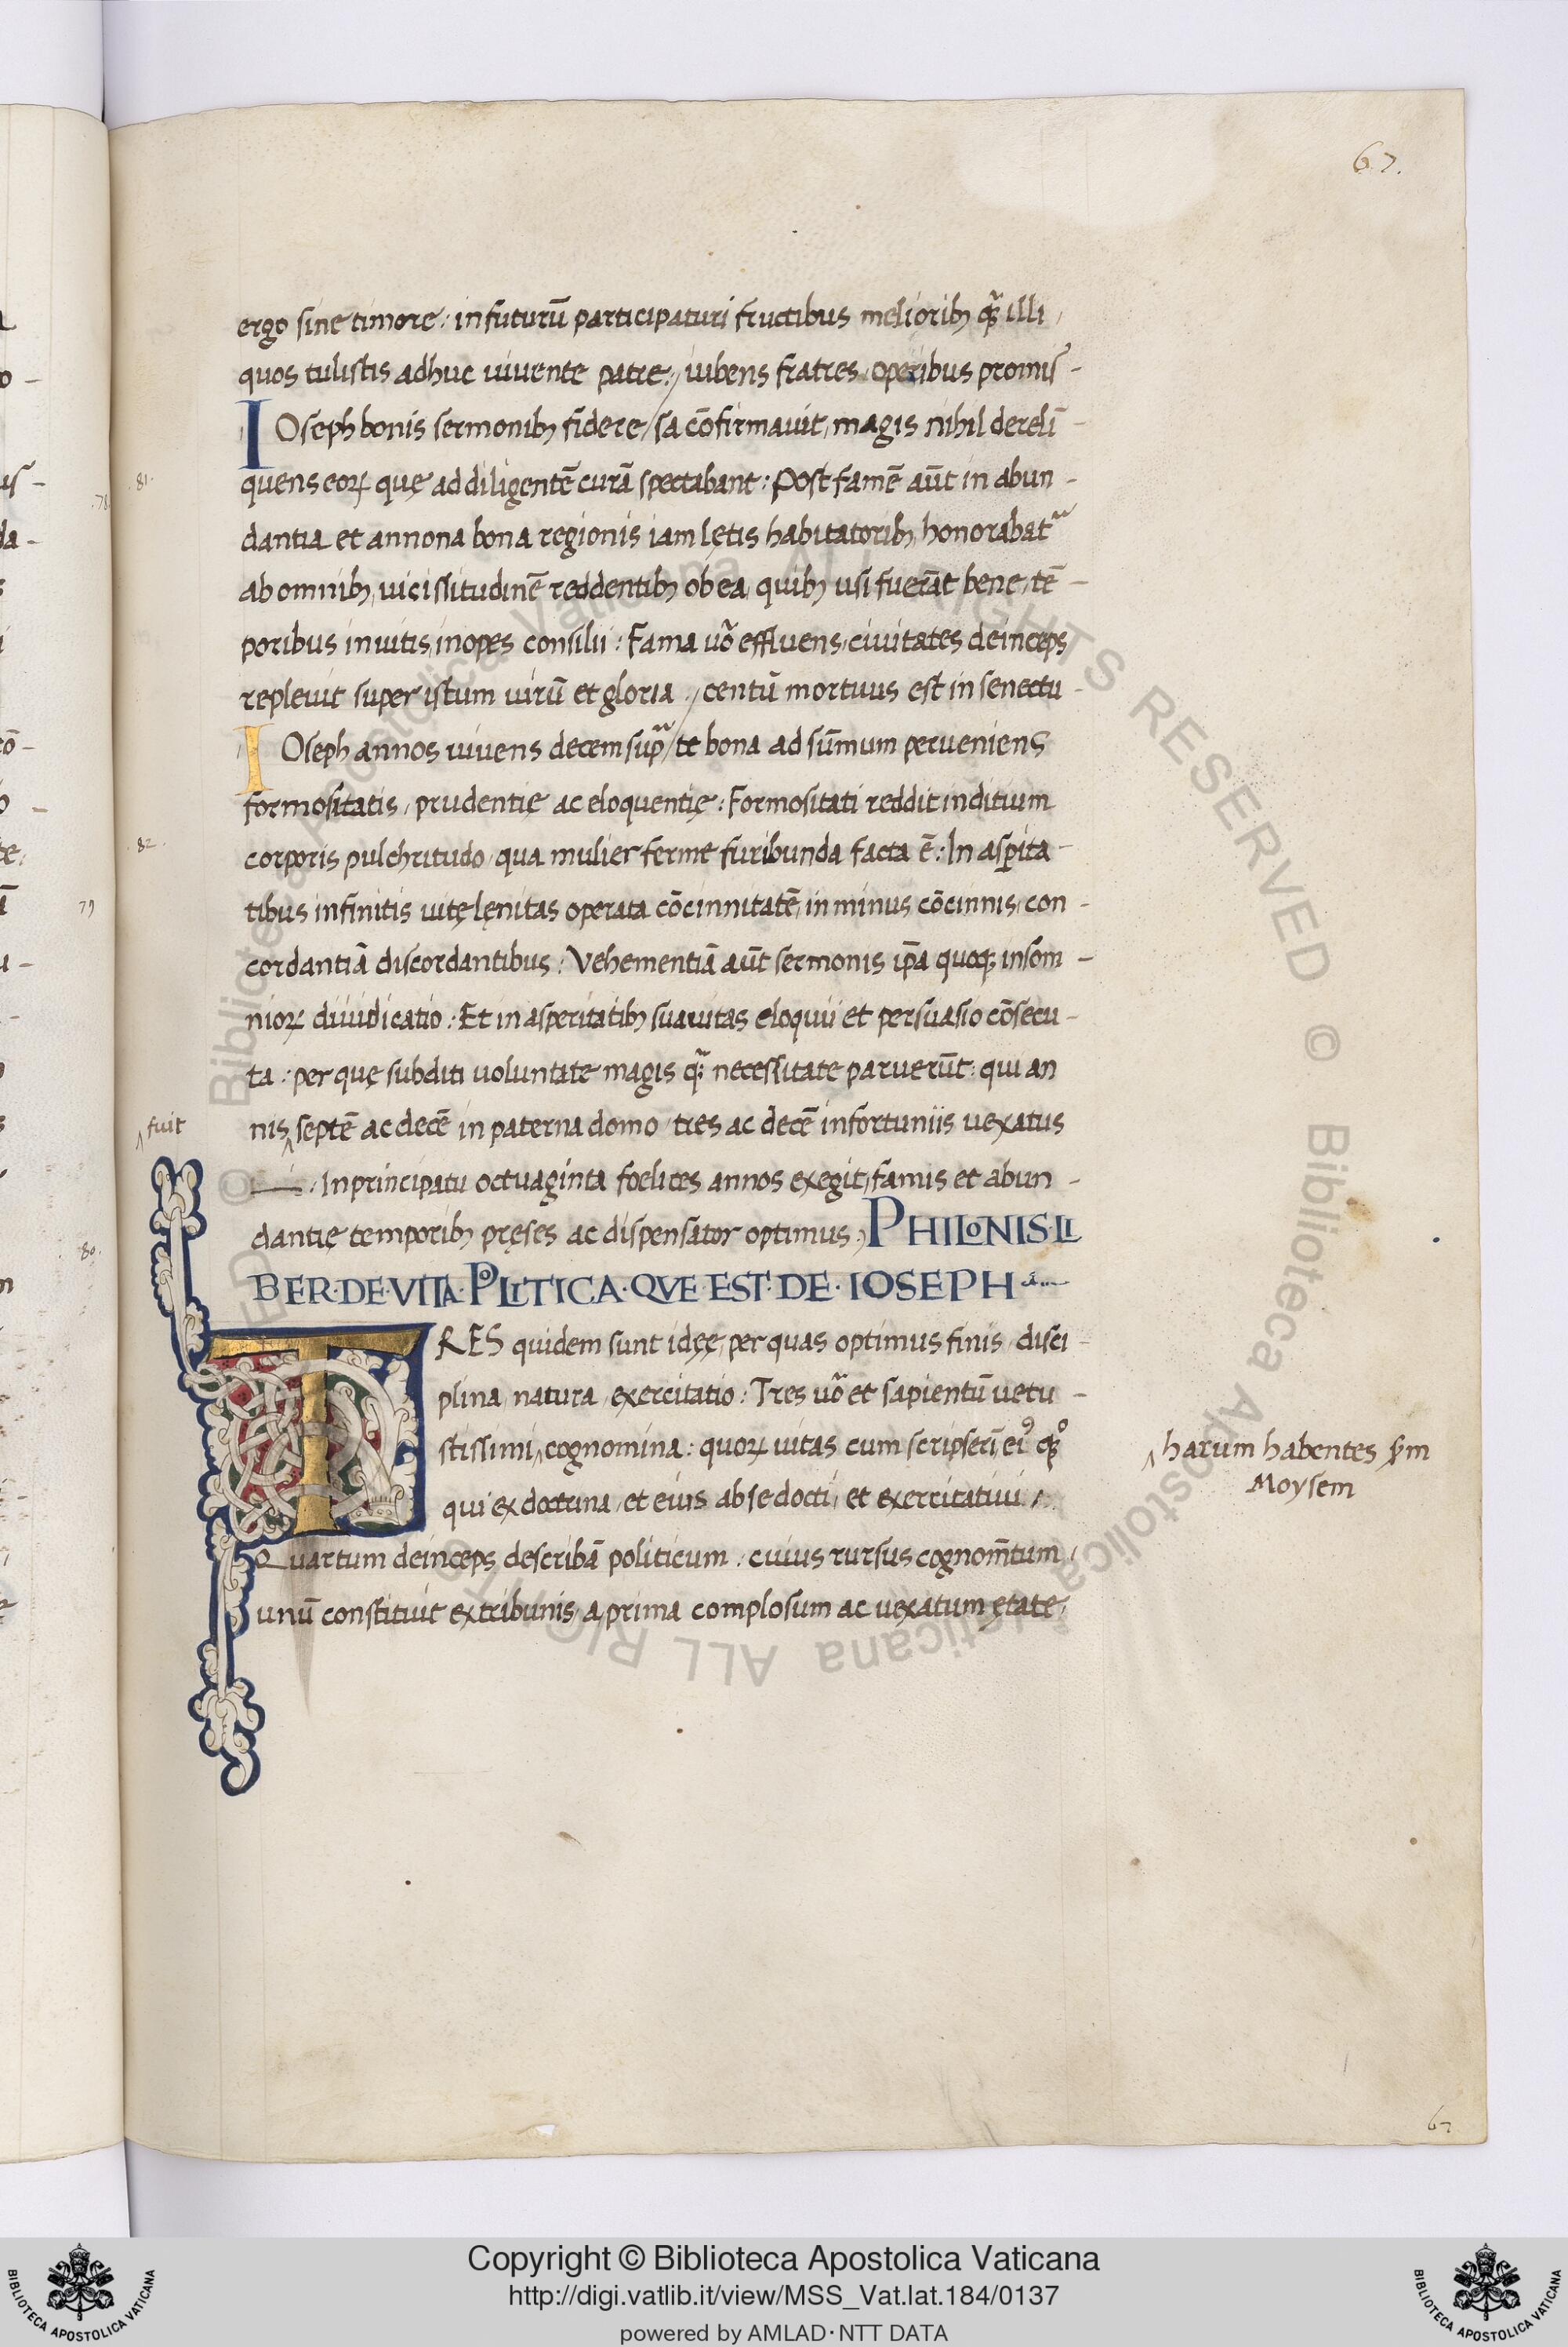 67.
ergo sine timore: in futurū participaturi fructibus melioribȝ qȝ̃ illi,
quos tulistis adhuc viuente patre:, iubens fratres, operibus promis-
IOseph bonis sermonibȝ fidere, sa cōfirmauit, magis nihil dereli̅-
81.
quens eorꝝ quę ad diligentē curā spectabant: Post famē aūt in abun-
dantia et annona bona regionis iam lętis habitatoribȝ, honorabat᷑
ab omnibȝ, uicissitudinē reddentibȝ ob ea, quibȝ usi fuerāt bene, tē-
poribus in uitis, inopes consilii: Fama uõ effluens, ciuitates deinceps
repleuit super istum uirū et gloria:, centū mortuus est in senectu-
IOseph annos uiuens decem sup᷑, te bona ad sūmum perueniens
formositatis, prudentię ac eloquentię: Formositati reddit inditium
82.
corporis pulchritudo, qua mulier ferme furibunda facta ē: In asꝑita-
tibus infinitis uitę lęnitas operata cōcinnitatē, in minus cōcinnis, con-
cordantiā discordantibus: Vehementiā aūt sermonis ip̄a quoqȝ insom-
niorꝝ diiudicatio: Et in asperitatibȝ suauitas eloquii et persuasio cōsecu-
ta: per quę subditi uoluntate magis qȝ̃ necessitate paruerūt: qui an
fuit
nis‸septē ac decē in paterna domo, tres ac decē infortuniis uexatus
. In principatu octuaginta foelices annos exegit, famis et abun-
dantię temporibȝ pręses ac dispensator optimus, PHILONIS·LI
BER·DE·VITA·POLITICA·QVE·EST·DE·IOSEPH
TRES quidem sunt idęę, per quas optimus finis, disci-
plina, natura, exercitatio: Tres uõ et sapientū uetu-
stissimi‸cognomina: quorꝝ uitas cum scripseri̅
‸harum habentes
Moysem
qui ex doctrina, et eius ab se docti, et exercitatiui,
Quartum deinceps describā politicum, cuius rursus cognom̄tum,
unū constituit ex tribunis, a prima complosum ac uexatum ętate,
67
78.
79
80.
© Biblioteca Apostolica Vaticana ALL RIGHTS RESERVED © Biblioteca Apostolica Vaticana ALL RIGHTS RESERVED
Copyright © Biblioteca Apostolica Vaticana
http://digi.vatlib.it/view/MSS_Vat.lat.184/0137
powered by AMLAD·NTT DATA
BIBLIOTECA APOSTOLICA VATICANA
BIBLIOTECA APOSTOLICA VATICANA